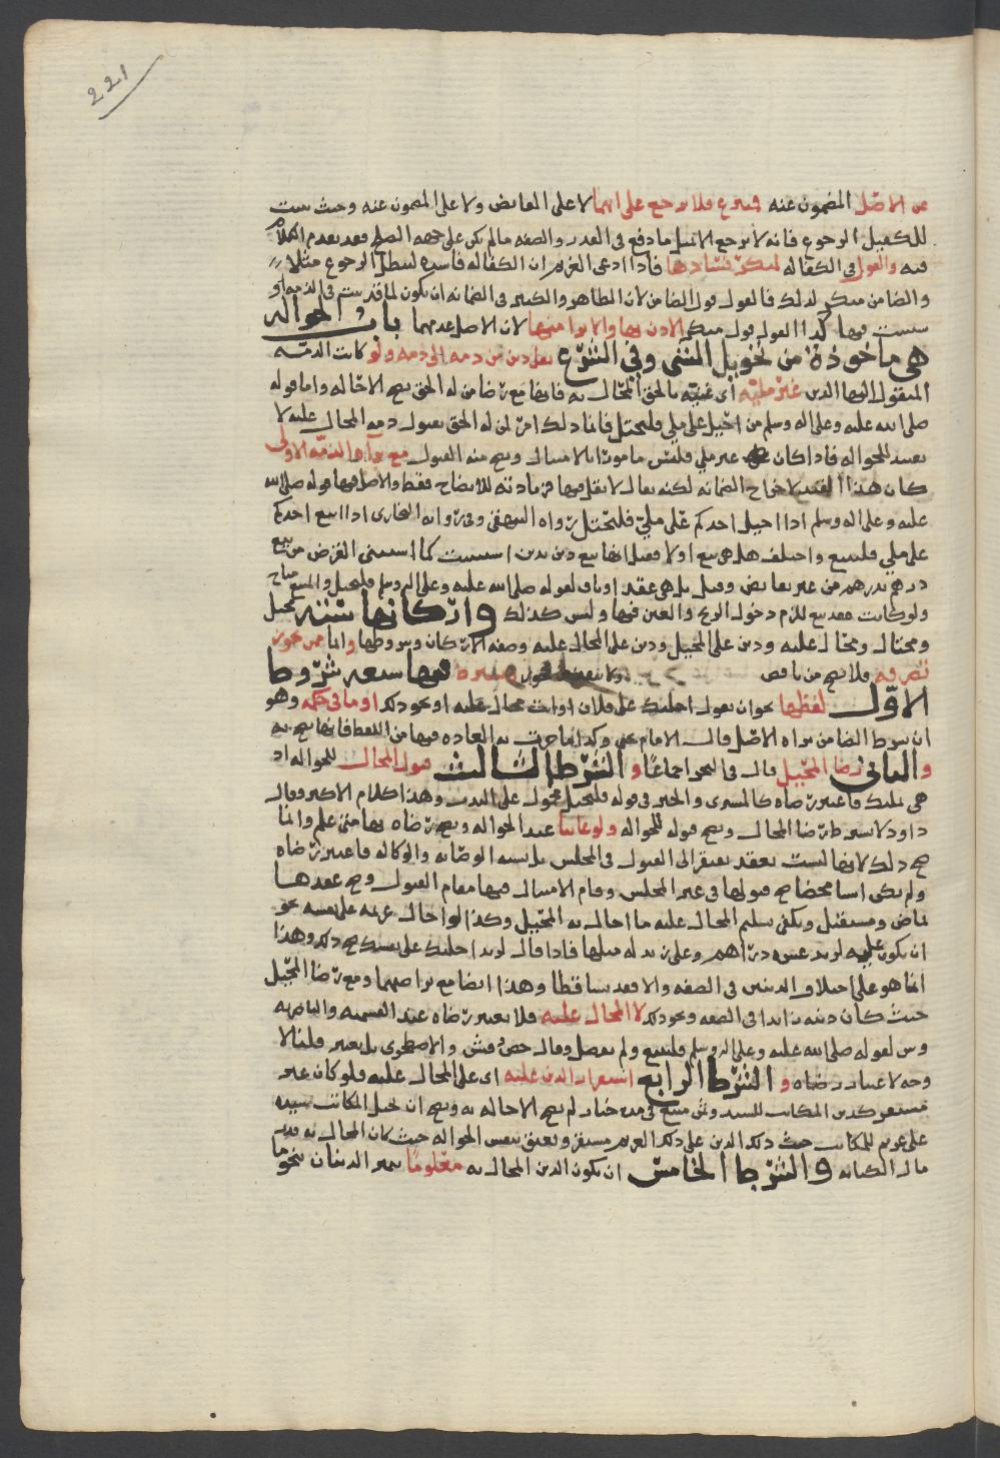 221
عن الاصل المضمون عنه فتبرع فلا يرجع على ايهما لا على القابض ولا على المضمون عنه وحيث يثبت
للكفيل الرجوع فانه لا يرجع الا بمثل ما دفع في القدر والصفه ما لم يكن على جهه الصلح فقد تقدم الكلام
فيه والقول في الكفاله لمنكر فسادها فاذا ادعى الغريم ان الكفاله فاسده ليبطل الرجوع مثلا
والضامن منكر لذلك فالقول قول الضامن لان الظاهر
القول قول منكر الاذن بها والابرا منها لان الاصل عدمهما باب الحواله
هي ماخوذة من تحويل الشي وفي الشرع نقل دين من ذمه الى ذمه ولو كانت الذمه
المنقول اليها الدين غير مليه اي غنيه بالحق المحال به فانها مع رضا من له الحق تصح الاحاله واما قوله
صلى الله عليه وعلى اله وسلم من احيل على ملي فليحتل فانما ذلك امر لمن له الحق بقبول ذمه المحال عليه لا
للحواله فاذا كان على غير ملي فليس مامورا بالامتثال ويصح منه القبول مع برآءه الذمه الاولى
كان هذا القيد لاخراج الضمانه لكنه يقال لا نقل فيها فزيادته للايضاح فقط والاصل فيها قوله صلى الله
عليه وعلى اله وسلم اذا احيل احدكم على مليّ فليحتل رواه البيهقي وفي روايه البخارى اذا اتبع احدكم
على ملي فليتبع واختلف هل هي بيع اولا فقيل انها بيع دين بدين استثنيت كما استثنى القرض من بيع
درهم بدرهم من غير تقابض وقيل بل هي عقد لقوله صلى الله عليه وعلى اله وسلم فليحتل والبيع مباح
ولو كانت عقد بيع للزم دخول الربح والغبن فيها وليس كذلك واركانها ستة محيل
ومحتال ومحال عليه ودين على المحيل ودين على المحال عليه وصفه الاركان وشروطها وانما ممن يجوز
تصرفه فلا تصح من ناقص فيها سبعه شروط
الاوّل لفظها نحو ان يقول احلتك على فلان او انت محال عليه او نحو ذلك او ما في حكمه وهو
ان يشرط الضامن براه الاصل قال الامام يحيى وكذا ما جرت به العاده فيها من اللفظ فانها تصح به
والثاني رضا المحيل قال في البحر اجماعًا والشرط الثالث قبول المحال للحواله اذ
هي تمليك فاعتبر رضاه كالمشترى والخبر في قوله فليحتل محمول على الندب وهذا كلام الاكثر وقال
داود لا يشترط رضا المحال ويصح قوله للحواله ولو غائبا عند الحواله ويصح رضاه بها متى علم وانما
صح ذلك لانها ليست بعقد يفتقر الى القبول في المجلس بل تشبه الوصايه والوكاله فاعتبر رضاه
ولم تكن اسقاطا محضا صح قبولها في غير المجلس وقام الامتثال فيها مقام القبول وصح عقدها
بماض ومستقبل ويكفي تسليم المحال عليه ما احال به المحيل وكذا لو احال غريمه على نفسه نحو
ان يكون عليه لزيد عشره دراهم وعلى زيد له مثلها فاذا قال لزيد احلتك على نفسك صح ذلك وهذا
انما هو على اختلاف الدينين في الصفه والا فقد تساقطا وهذا ايضا مع تراضيهما ومع رضا المحيل
حيث كان دينه زايدا في الصفه ونحو ذلك لا المحال عليه فلا يعتبر رضاه عند القسميه والناصريه
وش لقوله صلى الله عليه وعلى اله وسلم فليتبع ولم يفصل وقال حص وفش والاصطخرى بل يعتبر قلنا لا
وجه لاعتبار رضاه والشرط الرابع استقرار الدين عليه اى على المحال عليه فلو كان غير
مستقر كدين المكاتب للسيد وثمن مبيع في مده خيار لم تصح الاحاله به ويصح ان يحيل المكاتب سيده
على غريم للمكاتب حيث ذلك الدين على ذلك الغريم مستقر ويعتق بنفس الحواله حيث كان المحال به قدر
مال الكتابه والشرط الخامس ان يكون الدين المحال به معلومًا